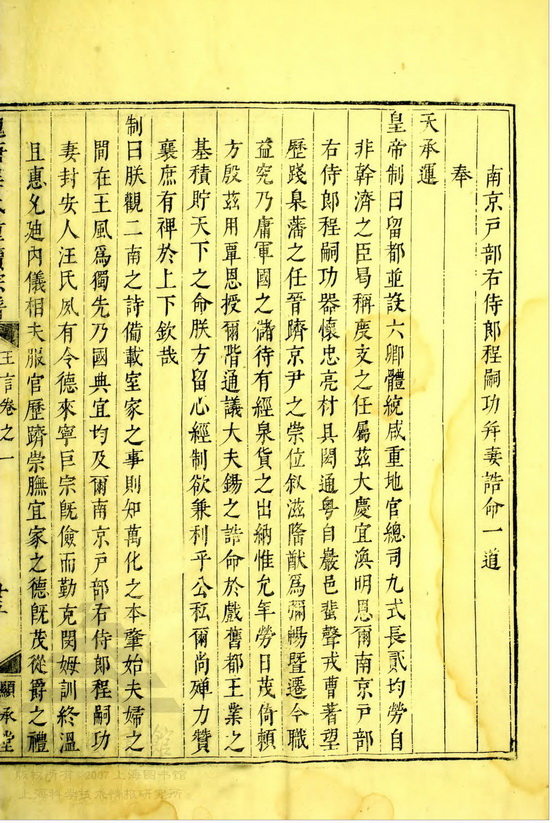 南京戸部右侍郎程嗣功并妻誥命一道
奉
天承運
皇帝制曰留都並設六卿體統咸重地官總司九式長貳均勞自
非幹濟之臣曷稱度支之任屬茲大慶宜渙明恩爾南京戸部
右侍郎程嗣功器懷忠亮材具閎通粵自巖邑蜚聲戎曹著望
歷踐臬藩之任晉躋京尹之崇位叙滋隆猷爲彌暢暨遷今職
益究乃庸軍國之儲待有經泉貨之出納惟允年勞日茂倚賴
方殷茲用覃恩授爾階通議大夫錫之誥命於戲舊都王業之
基積貯天下之命朕方留心經制欲兼利乎公私爾尚殫力贊
襄庶有裨於上下欽哉
制曰朕觀二南之詩備載室家之事則知萬化之本肇始夫婦之
間在王風爲獨先乃國典宜均及爾南京戸部右侍郎程嗣功
妻封安人汪氏夙有令德來寧巨宗旣儉而勤克閑姆訓終溫
且惠允廸内儀相夫服官歷躋崇膴宜家之德旣茂從爵之禮
王言卷之一
顯承堂
版权所有©2007上海图书馆
上海科学技术情报研究所